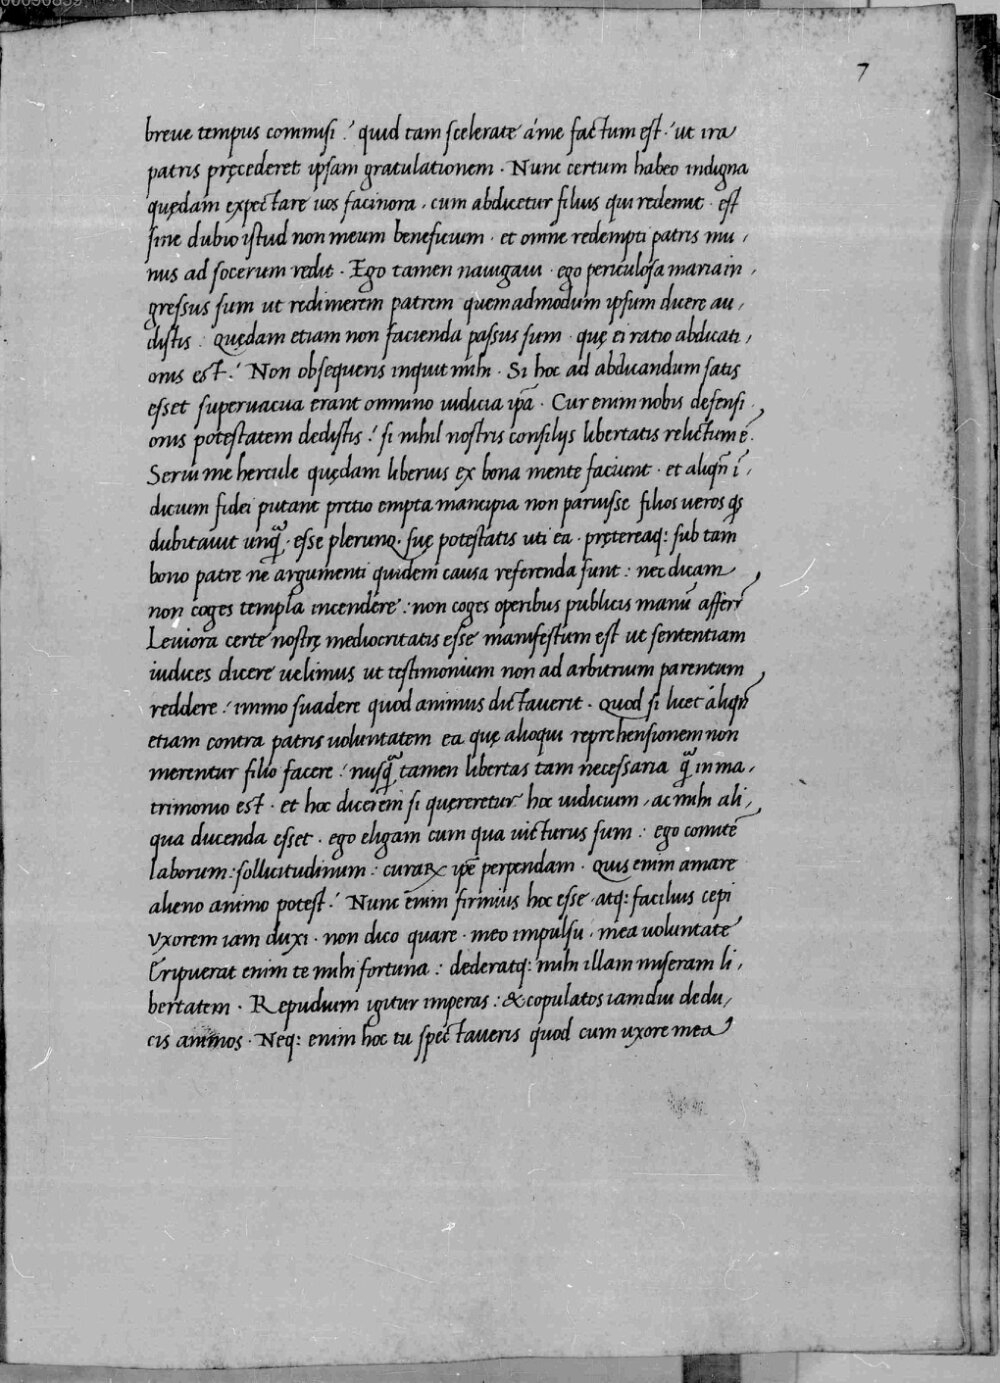 7
breue tempus commisi? quid tam scelerate á me factum est? ut ira
patris pręcederet ipsam gratulationem. Nunc certum habeo indigna
quędam expectare uos facinora, cum abdicetur filius qui redemit. est
sine dubio istud non meum beneficium. et omne redempti patris mu,
nus ad socerum redit. Ego tamen nauigaui. ego periculosa maria in,
gressus sum ut redimerem patrem quemadmodum ipsum dicere au,
distis. Quędam etiam non facienda passus sum. quę ei ratio abdicati,
onis est? Non obsequeris inquit mihi. Si hoc ad abdicandum satis
esset superuacua erant omnino iudicia ip̄a. Cur enim nobis defensi,
onis potestatem dedistis? si nihil nostris consilijs libertatis relictum ē.
Serui me hercule quędam liberius ex bona mente faciunt. et aliqñ ī,
dicium fidei putant pretio empta mancipia non paruisse filios ueros
dubitauit unq̃. esse plerunq. suę potestatis uti ea. prętereaq: sub tam
bono patre ne argumenti quidem causa referenda sunt: nec dicam
non coges templa incendere: non coges operibus publicis manū afferr̄
Leuiora certe nostrę mediocritatis esse manifestum est ut sententiam
iudices dicere uelimus ut testimonium non ad arbitrium parentum
reddere: immo suadere quod animus dictauerit. Quod si licet aliqñ
etiam contra patris uoluntatem ea quę alioqui reprehensionem non
merentur filio facere: nusq̃ tamen libertas tam necessaria q̃ in ma,
trimonio est. et hoc dicerem si quęreretur hoc iudicium, ac mihi ali,
qua ducenda esset. ego eligam cum qua uicturus sum: ego comitē
laborum: sollicitudinum: curaꝝ ip̄e perpendam. Quis enim amare
alieno animo potest? Nunc enim firmius hoc esse. atq: facilius cepi
Vxorem iam duxi. non dico quare. meo impulsu, mea uoluntate
Eripuerat enim te mihi fortuna: dederatq: mihi illam miseram li,
bertatem. Repudium igitur imperas: & copulatos iamdiu dedu,
cis animos. Neq: enim hoc tu spectaueris quod cum uxore mea